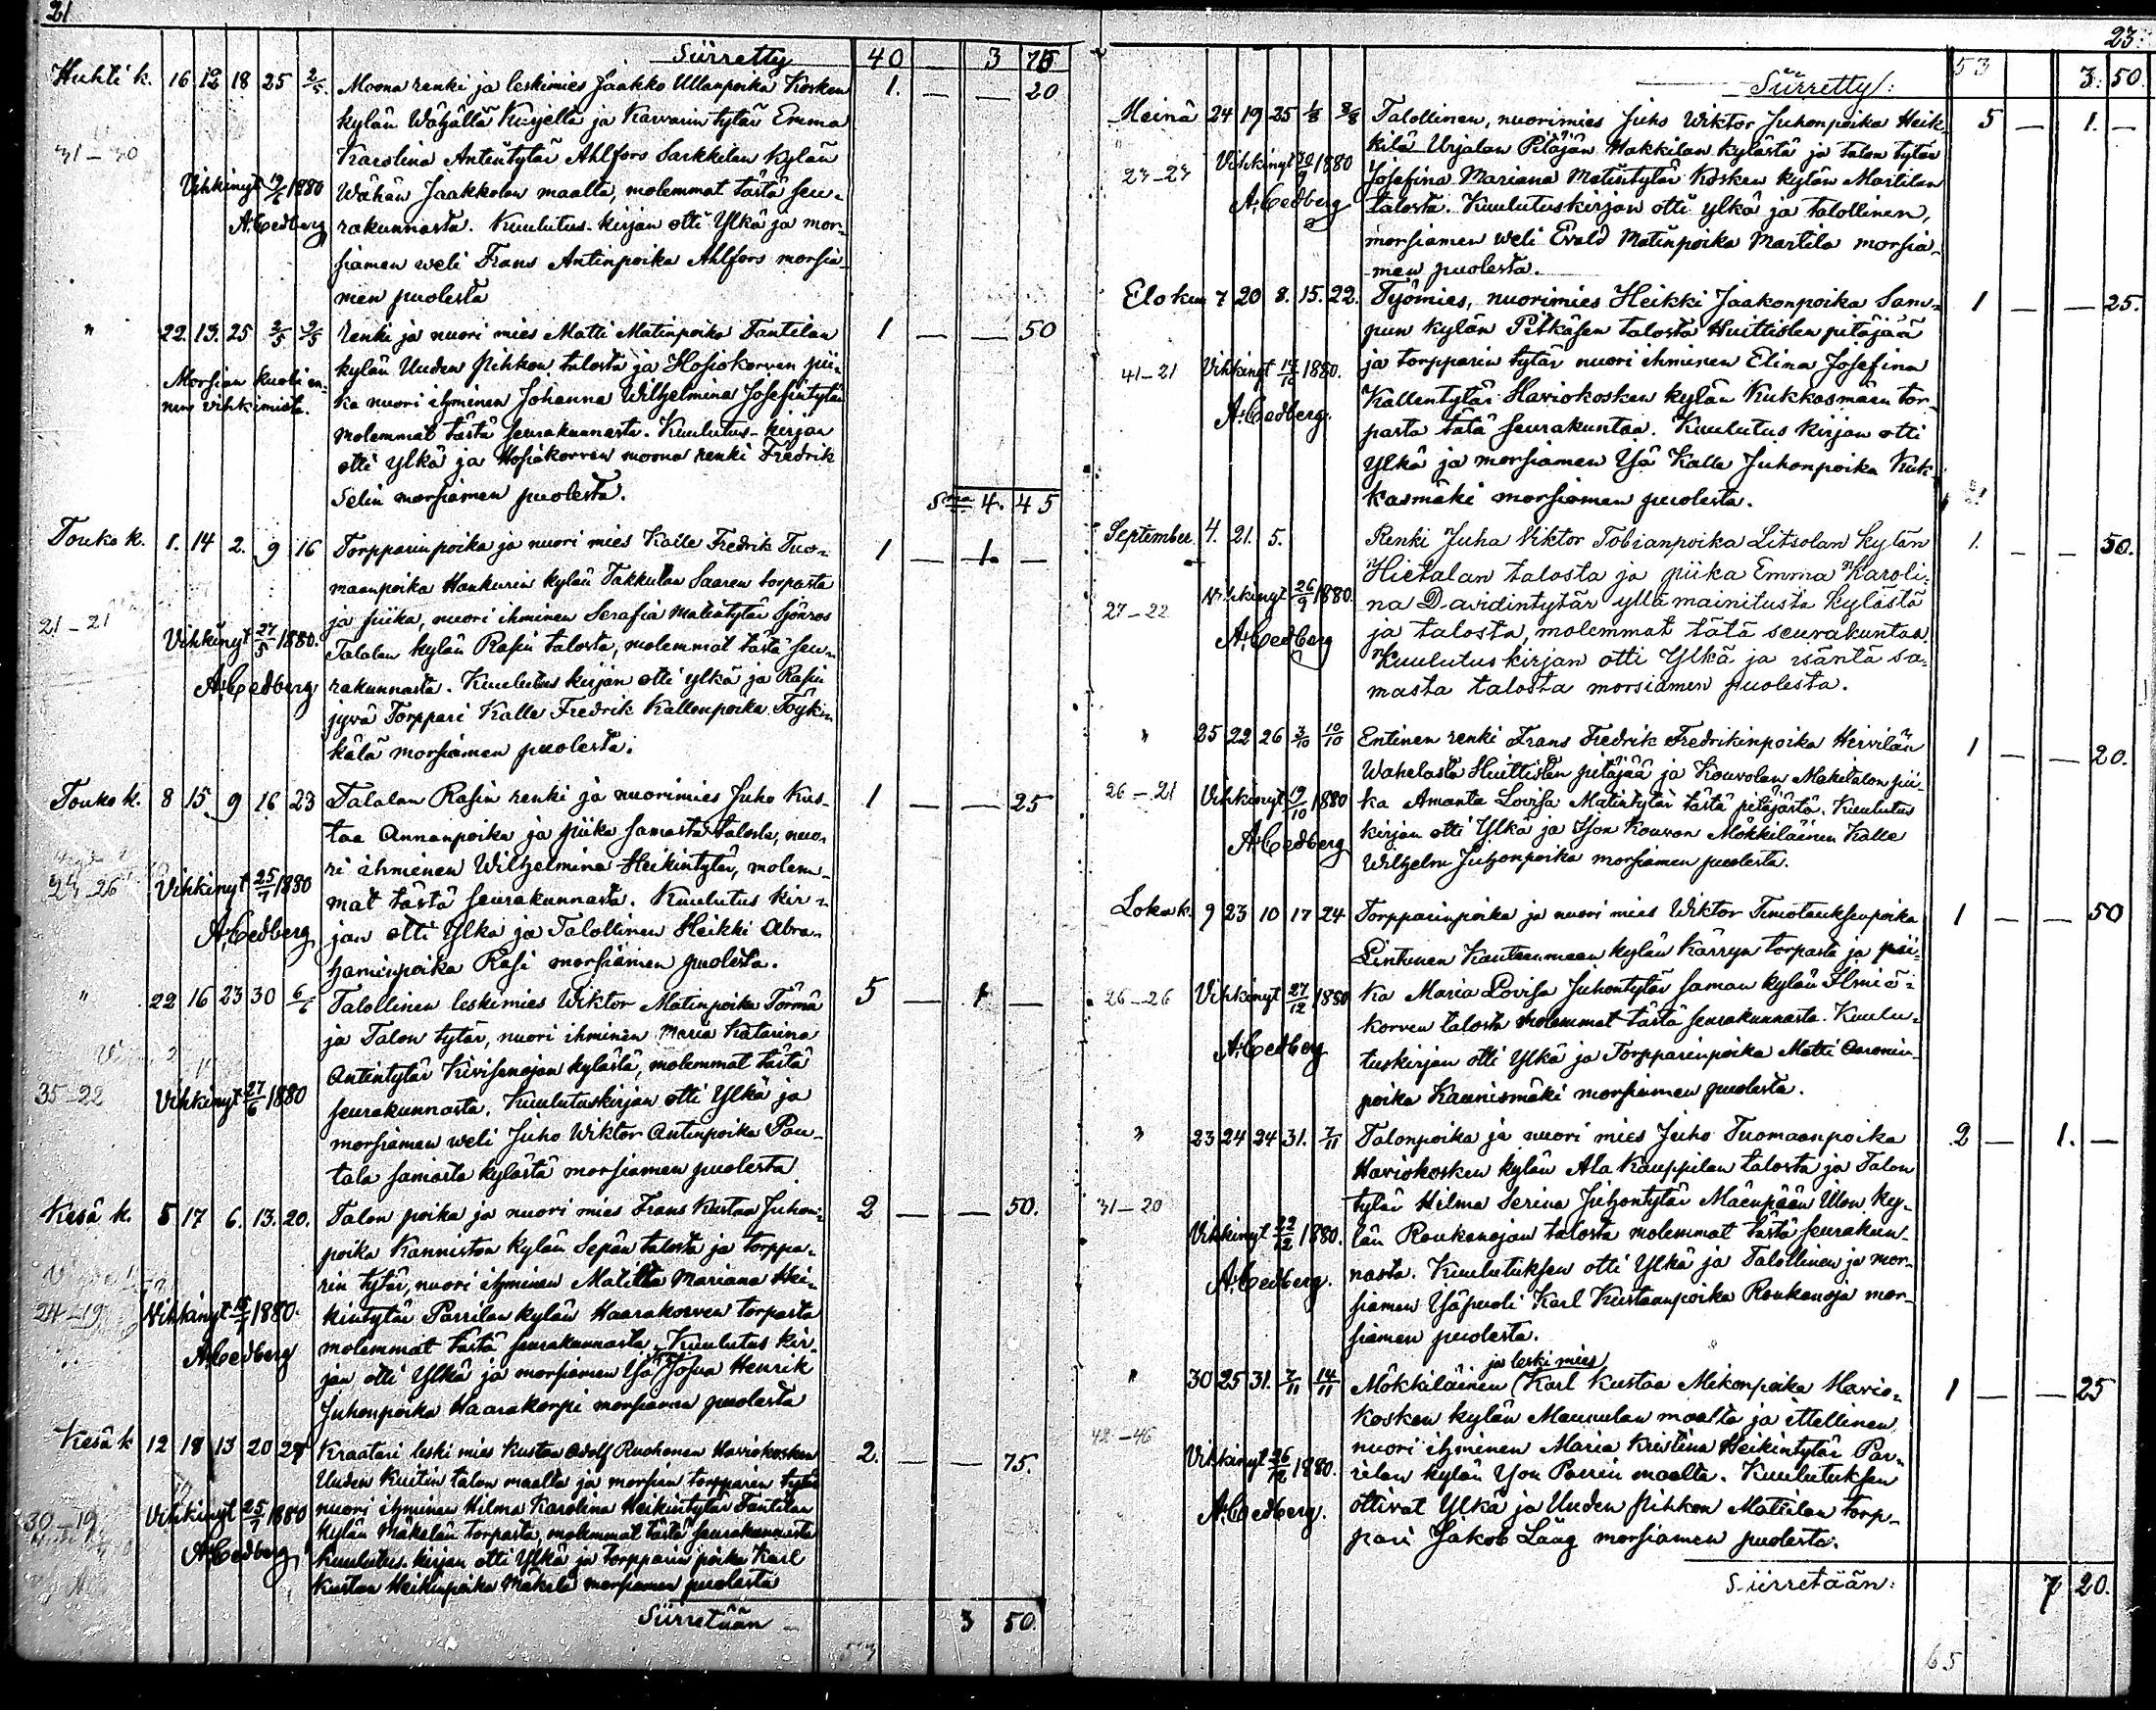 21
Siirretty 40 — 3 75
Huhti k. 16 12 18 25 2/5. Moona renki ja leskimies Jaakko Ullanpoika Kosken 1. — — 20
kylän Wähällä Kirjellä ja Karvarin tytär Emma
31–30 Karolina Antintytär Ahlfors Sarkkilan Kylän
Vihkinyt 1880 Wähän Jaakkolan maalta, molemmat tästä seu-
A. Cedberg rakunnasta. Kuulutus-kirjan otti Ylkä ja mor-
siamen weli Frans Antinpoika Ahlfors morsia-
men puolesta
" 22. 13. 25 2/5 9/5 Renki ja nuori mies Matti Matinpoika Fantilan 1 — — 50
Morsian kuoli en- kylän Uuden Pihkon talosta ja Hosiokorven pii-
nen vihkimistä. ka nuori ihminen Johanna Wilhelmina Josefintytär
molemmat tästä seurakunnasta. Kuulutus-kirjan
otti Ylkä ja Hosiokorven moona renki Fredrik
Selin morsiamen puolesta.
Sma 4. 45
Touko k. 1. 14 2. 9 16 Torpparinpoika ja nuori mies Kalle Fredrik Tuo- 1 — 1. —
maanpoika Hankurin kylän Takkulan Saaren torpasta
21–21 ja piika, nuori ihminen Serafia Matintytär Sjönros
Vihkinyt 27/5 1880. Talalan kylän Rasin talosta, molemmat tästä seu-
A. Cedberg. rakunnasta. Kuulutus kirjan otti ylkä ja Rasin
jyvä Torppari Kalle Fredrik Kallenpoika Töykin
kälä morsiamen puolesta.
Touko k. 8 15 9 16 23 Talalan Rasin renki ja nuorimies Juho Kus- 1 — — 25
taa Annanpoika ja piika samasta talosta, nuo-
ri ihminen Wilhelmina Heikintytär, molem-
24–26 Vihkinyt 25/7 1880 mat tästä seurakunnasta. Kuulutus kir-
A. Cedberg jan otti Ylkä ja Talollinen Heikki Abra-
haminpoika Rasi morsiamen puolesta.
" 22 16 23 30 6/6 Talollinen leskimies Wiktor Matinpoika Törmä 5 — 1 —
ja Talon tytär, nuori ihminen Maria Katarina
Antintytär Kivisenojan kylästä, molemmat tästä
35–22 Vihkinyt 27/6 1880 seurakunnasta. Kuulutuskirjan otti Ylkä ja
morsiamen weli Juho Wiktor Antinpoika Pau-
tala samasta kylästä morsiamen puolesta
Kesä k. 5 17 6. 13. 20. Talon poika ja nuori mies Frans Kustaa Juhon- 2 — — 50.
poika Kanniston kylän Sepän talosta ja torppa-
rin tytär, nuori ihminen Matilta Mariana Hei-
24–19 Vihkinyt 1880. kintytär Parrilan kylän Haarakorven torpasta
A. Cedberg molemmat tästä seurakunnasta. Kuulutus kir-
jan otti Ylkä ja morsiamen Isä Josua Henrik
Juhonpoika Haarakorpi morsiamen puolesta
Kesä k 12 18 13 20 27 Kraatari leski mies Kustaa Adolf Ruohonen Haviokosken 2. — — 75.
Uuden Kuitin talon maalta ja morsian torpparin tytär
30–19 Vihkinyt 25/7 1880 nuori ihminen Hilma Karolina Heikintytär Fantilan
kylän Mäkelän torpasta, molemmat tästä seurakunnasta
A. Cedberg Kuulutus-kirjan otti Ylkä ja torpparin poika Karl
Kustaa Heikinpoika Mäkelä morsiamen puolesta
Siirretään 3 50.
23.
Siirretty: 53 3. 50.
Heinä 24 19 25 1/8 8/8 Talollinen, nuorimies Juho Wiktor Juhonpoika Heik- 5 — 1. —
kilä Urjalan Pitäjän Hakkilan kylästä ja talon tytär
23–23 Vihkinyt 30/9 1880 Josefina Mariana Matintytär Kosken kylän Martilan
A. Cedberg talosta. Kuulutuskirjan otti ylkä ja talollinen,
morsiamen weli Evald Matinpoika Martila morsia-
men puolesta.
Elo kuu 7 20 8. 15. 22. Työmies, nuorimies Heikki Jaakonpoika Sam- 1 — — 25.
pun kylän Pitkäsen talosta Huittisten pitäjää
41–21 Vihkinyt 1880. ja torpparin tytär nuori ihminen Elina Josefina
A. Cedberg. Kallentytär Haviokosken kylän Kukkasmäen tor-
pasta tätä seurakuntaa. Kuulutus kirjan otti
Ylkä ja morsiamen Isä Kalle Juhonpoika Kuk-
kasmäki morsiamen puolesta.
September. 4. 21. 5. Renki Juha Viktor Tobianpoika Litsolan kylän 1. — — 50.
Hietalan talosta ja piika Emma Karoli-
27–22 Vihkinyt 26/9 1880. na Davidintytär yllä mainitusta kylästä
A. Cedberg ja talosta, molemmat tätä seurakuntaa.
Kuulutus kirjan otti Ylkä ja isäntä sa-
masta talosta morsiamen puolesta.
" 25 22 26 3/10 10/10 Entinen renki Frans Fredrik Fredrikinpoika Hirvilän 1 — — 20.
Wahelasta Huittisten pitäjää ja Kouvolan Mäkitalon pii-
26–21 Vihkinyt 19/10 1880 ka Amanta Lovisa Matintytär tästä pitäjästä. Kuulutus
A. Cedberg kirjan otti Ylkä ja Ison Kouvon Mökkiläinen Kalle
Wilhelm Juhonpoika morsiamen puolesta.
Loka k. 9 23 10 17 24 Torpparinpoika ja nuori mies Wiktor Timoteuksenpoika 1 — — 50
Lintunen Kanteenmaan kylän Kärryn torpasta ja pii-
26–26 Vihkinyt 27/12 1880 ka Maria Lovisa Juhontytär saman kylän Ilmiö-
korven talosta molemmat tästä seurakunnasta. Kuulu-
A. Cedberg tuskirjan otti Ylkä ja Torpparinpoika Matti Aaronin-
poika Kaunismäki morsiamen puolesta.
" 23 24 24 31. 7/11 Talonpoika ja nuori mies Juho Tuomaanpoika 2 — 1. —
Haviokosken kylän Ala Kauppilan talosta ja Talon
31–20 tytär Hilma Serina Juhontytär Mäenpään Ulon ky-
Vihkinyt 22/12 1880. län Roukanojan talosta molemmat tästä seurakun-
A. Cedberg. nasta. Kuulutuksen otti Ylkä ja Talollinen ja mor-
siamen Isäpuoli Karl Kustaanpoika Roukanoja mor-
siamen puolesta.
ja leski mies
" 30 25 31. 7/11 14/11 Mökkiläinen Karl Kustaa Mikonpoika Havio- 1 — — 25
kosken kylän Maunulan maalta ja ittellinen
42–46 nuori ihminen Maria Kristina Heikintytär Par-
Vihkinyt 26/12 1880. rilan kylän Ison Parrin maalta. Kuulutuksen
A. Cedberg. ottivat Ylkä ja Uuden Pihkon Mattilan torp-
pari Jakob Lääg morsiamen puolesta.
Siirretään: 7 20.
65